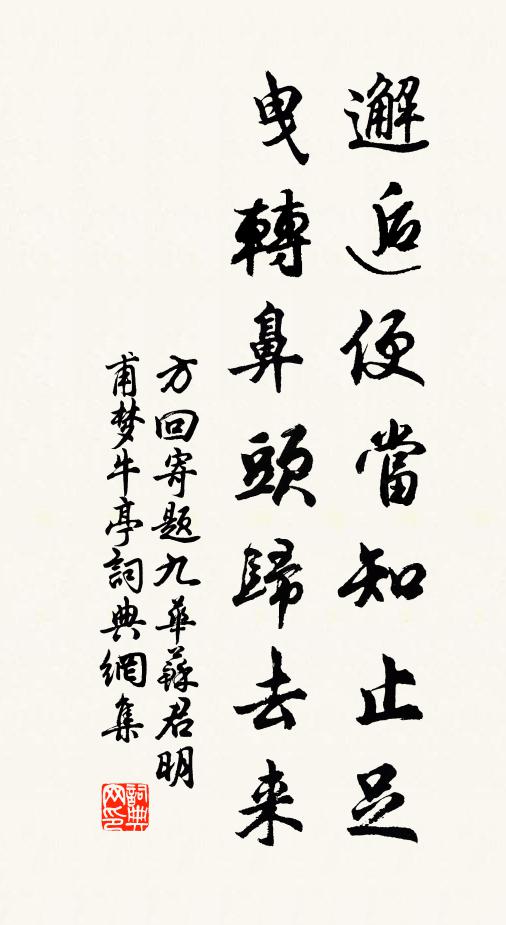 邂逅便當知止足
曳轉鼻頭歸去来
方回寄题九華蘇君明
甫梦牛亭詞典網集
詞典网印